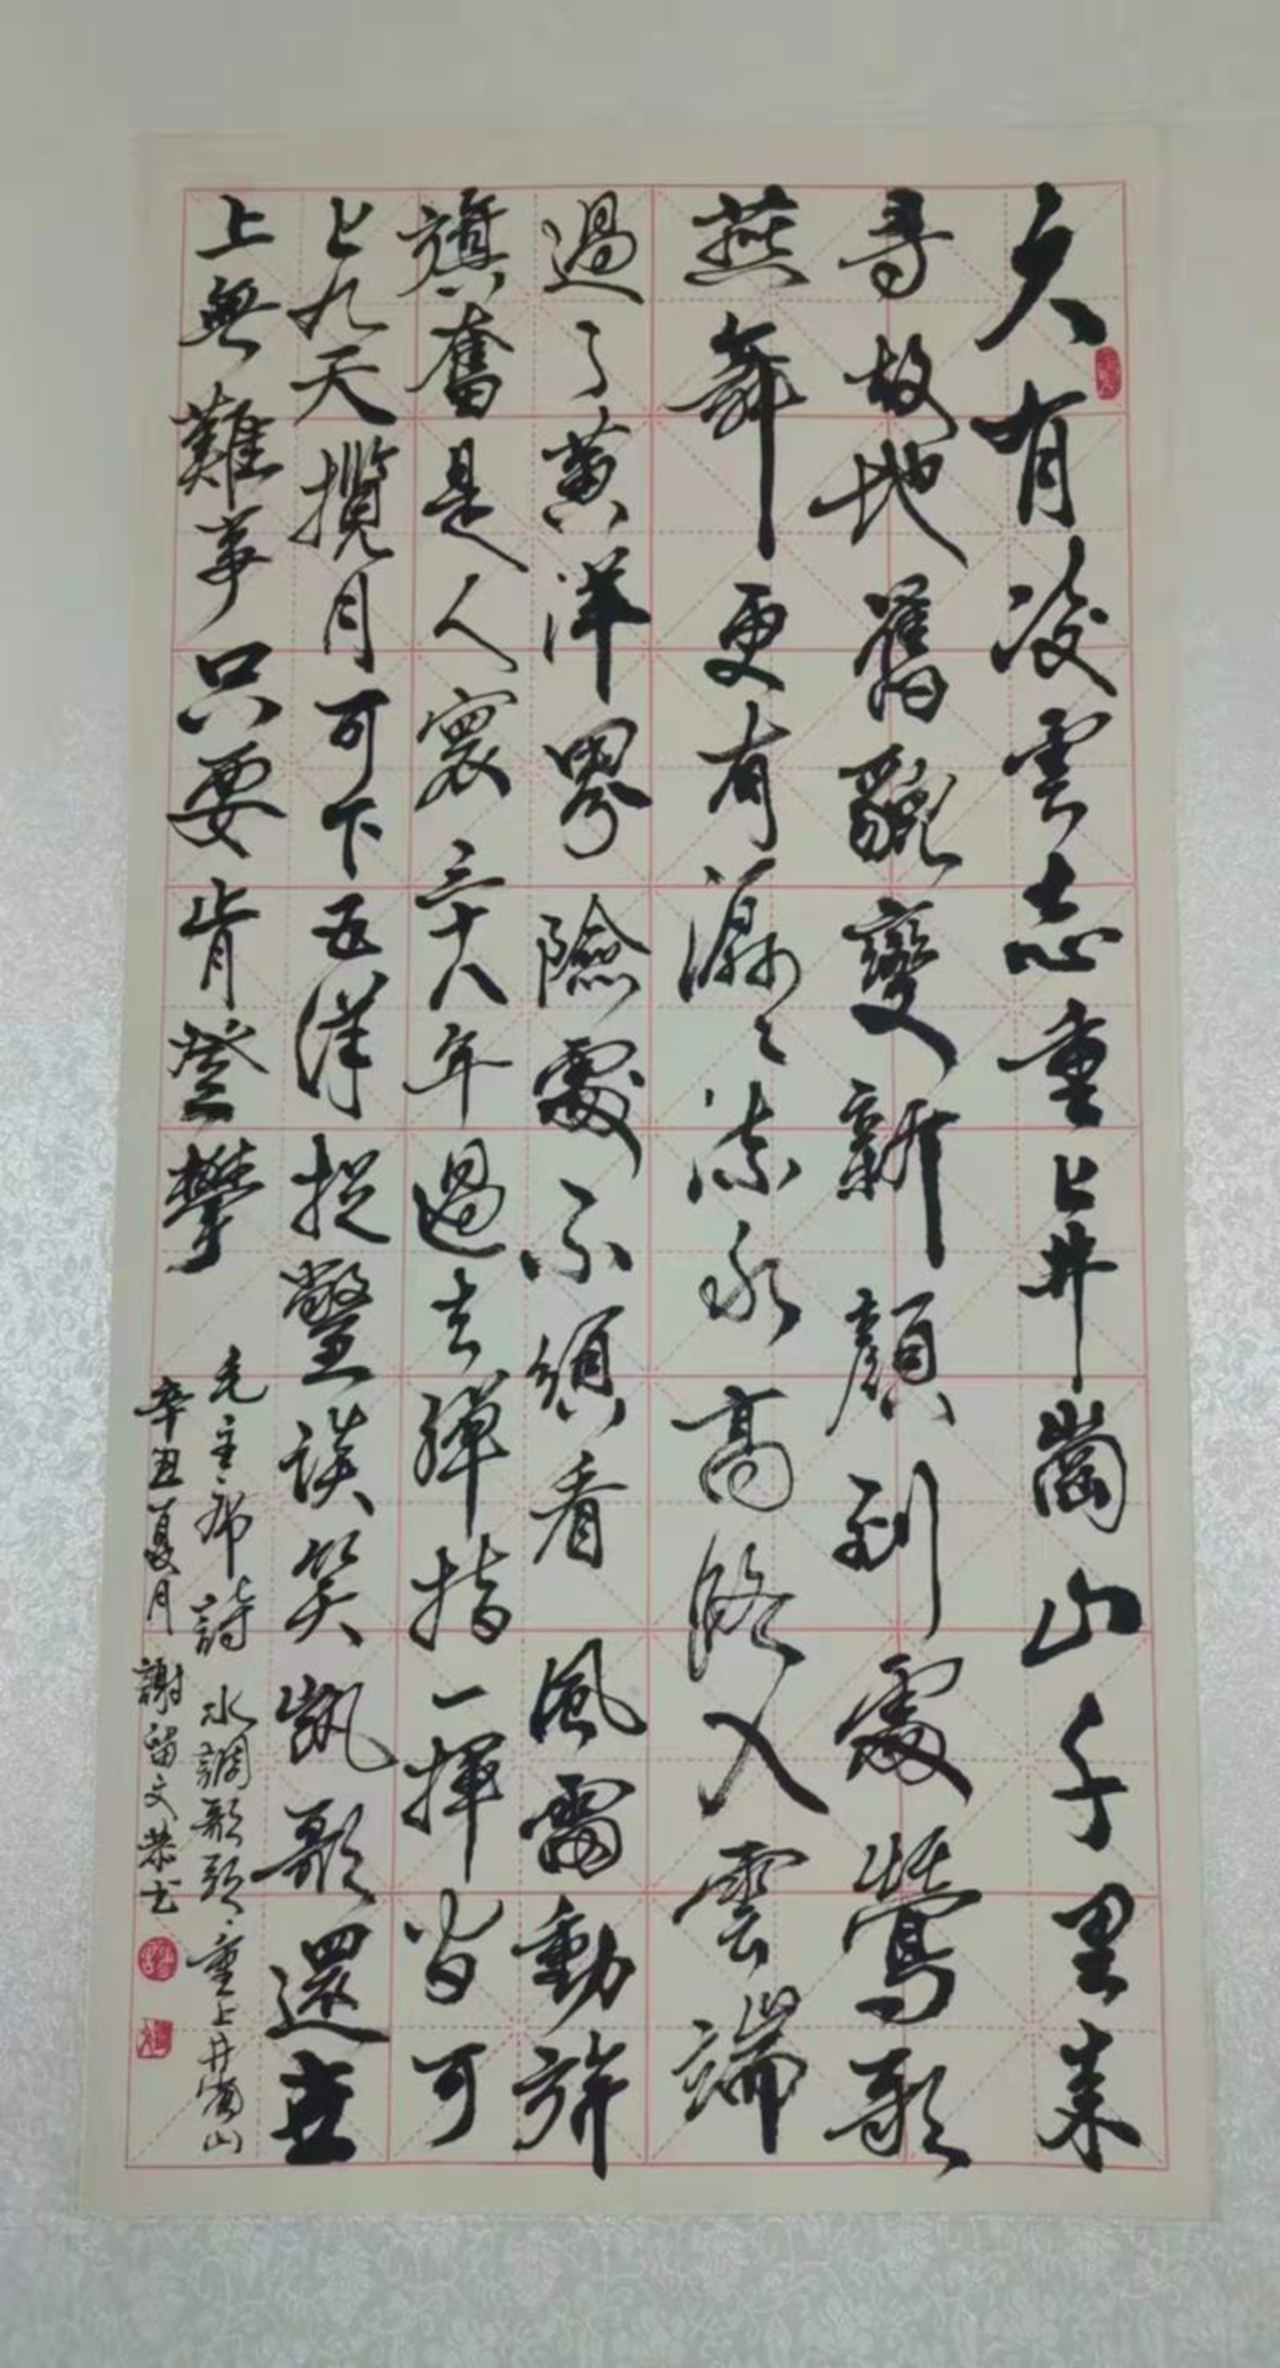 久有凌雲志重上井崗山千里來
尋故地舊貌變新顔到處鶯歌
燕舞更有潺〻流水高路入雲端
過了黄洋界險處不須看風雷動旌
旗奮是人寰三十八年過去彈指一揮皆可
上九天攬月可下五洋捉鱉談笑凱歌還世
上無難事只要肯登攀
毛主席詩水調歌頭·重上井崗山
辛丑夏月謝留文恭书